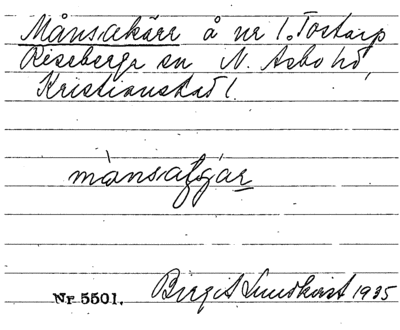 Månsakärr å nr 1. Tostarp
Riseberga sn N. Åsbo hd,
Kristianstad l.
månsaȼǵar
Nr 5501. Birgit Lundkvist 1935